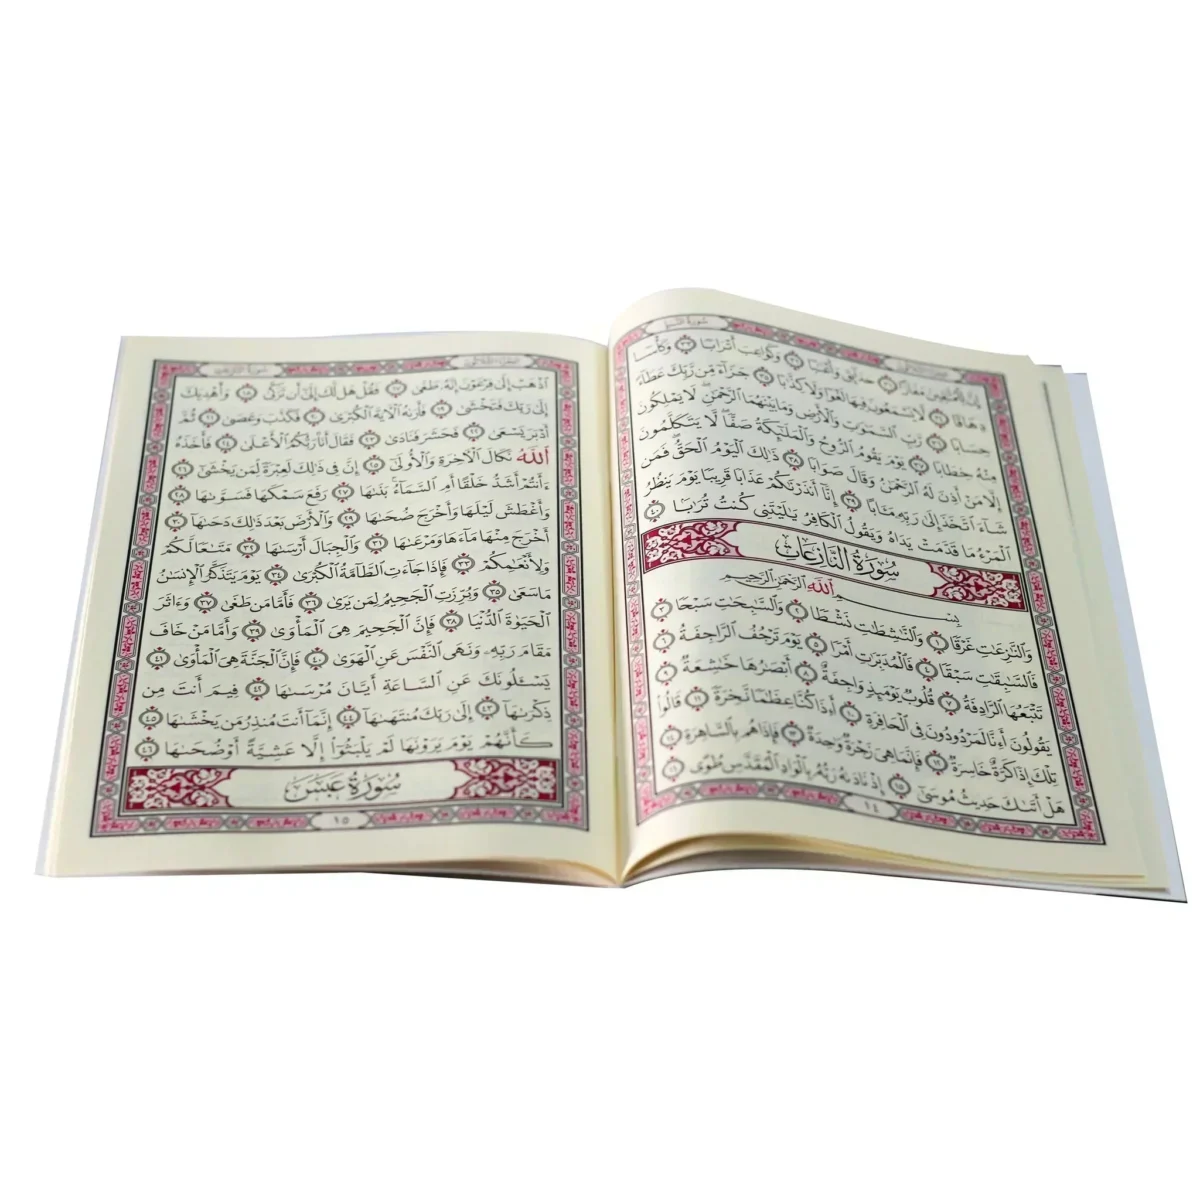 سورة النبإ
الجزء الثلاثون
إِنَّ لِلْمُتَّقِينَ مَفَازًا ٣١ حَدَآئِقَ وَأَعْنَٰبًا ٣٢ وَكَوَاعِبَ أَتْرَابًا ٣٣ وَكَأْسًا
دِهَاقًا ٣٤ لَّا يَسْمَعُونَ فِيهَا لَغْوًا وَلَا كِذَّٰبًا ٣٥ جَزَآءً مِّن رَّبِّكَ عَطَآءً
حِسَابًا ٣٦ رَّبِّ ٱلسَّمَٰوَٰتِ وَٱلْأَرْضِ وَمَا بَيْنَهُمَا ٱلرَّحْمَٰنِ لَا يَمْلِكُونَ
مِنْهُ خِطَابًا ٣٧ يَوْمَ يَقُومُ ٱلرُّوحُ وَٱلْمَلَٰٓئِكَةُ صَفًّا لَّا يَتَكَلَّمُونَ
إِلَّا مَنْ أَذِنَ لَهُ ٱلرَّحْمَٰنُ وَقَالَ صَوَابًا ٣٨ ذَٰلِكَ ٱلْيَوْمُ ٱلْحَقُّ فَمَن
شَآءَ ٱتَّخَذَ إِلَىٰ رَبِّهِۦ مَـَٔابًا ٣٩ إِنَّآ أَنذَرْنَٰكُمْ عَذَابًا قَرِيبًا يَوْمَ يَنظُرُ
ٱلْمَرْءُ مَا قَدَّمَتْ يَدَاهُ وَيَقُولُ ٱلْكَافِرُ يَٰلَيْتَنِى كُنتُ تُرَٰبًا ٤٠
سُورَةُ النَّازِعَاتِ
بِسْمِ ٱللَّهِ ٱلرَّحْمَٰنِ ٱلرَّحِيمِ
وَٱلنَّٰزِعَٰتِ غَرْقًا ١ وَٱلنَّٰشِطَٰتِ نَشْطًا ٢ وَٱلسَّٰبِحَٰتِ سَبْحًا ٣
فَٱلسَّٰبِقَٰتِ سَبْقًا ٤ فَٱلْمُدَبِّرَٰتِ أَمْرًا ٥ يَوْمَ تَرْجُفُ ٱلرَّاجِفَةُ ٦
تَتْبَعُهَا ٱلرَّادِفَةُ ٧ قُلُوبٌ يَوْمَئِذٍ وَاجِفَةٌ ٨ أَبْصَٰرُهَا خَٰشِعَةٌ ٩
يَقُولُونَ أَءِنَّا لَمَرْدُودُونَ فِى ٱلْحَافِرَةِ ١٠ أَءِذَا كُنَّا عِظَٰمًا نَّخِرَةً ١١ قَالُوا۟
تِلْكَ إِذًا كَرَّةٌ خَاسِرَةٌ ١٢ فَإِنَّمَا هِىَ زَجْرَةٌ وَٰحِدَةٌ ١٣ فَإِذَا هُم بِٱلسَّاهِرَةِ ١٤
هَلْ أَتَىٰكَ حَدِيثُ مُوسَىٰٓ ١٥ إِذْ نَادَىٰهُ رَبُّهُۥ بِٱلْوَادِ ٱلْمُقَدَّسِ طُوًى ١٦
١٤
سورة النازعات
الجزء الثلاثون
ٱذْهَبْ إِلَىٰ فِرْعَوْنَ إِنَّهُۥ طَغَىٰ ١٧ فَقُلْ هَل لَّكَ إِلَىٰٓ أَن تَزَكَّىٰ ١٨ وَأَهْدِيَكَ
إِلَىٰ رَبِّكَ فَتَخْشَىٰ ١٩ فَأَرَىٰهُ ٱلْـَٔايَةَ ٱلْكُبْرَىٰ ٢٠ فَكَذَّبَ وَعَصَىٰ ٢١ ثُمَّ
أَدْبَرَ يَسْعَىٰ ٢٢ فَحَشَرَ فَنَادَىٰ ٢٣ فَقَالَ أَنَا۠ رَبُّكُمُ ٱلْأَعْلَىٰ ٢٤ فَأَخَذَهُ
ٱللَّهُ نَكَالَ ٱلْـَٔاخِرَةِ وَٱلْأُولَىٰٓ ٢٥ إِنَّ فِى ذَٰلِكَ لَعِبْرَةً لِّمَن يَخْشَىٰٓ ٢٦
ءَأَنتُمْ أَشَدُّ خَلْقًا أَمِ ٱلسَّمَآءُ بَنَىٰهَا ٢٧ رَفَعَ سَمْكَهَا فَسَوَّىٰهَا ٢٨
وَأَغْطَشَ لَيْلَهَا وَأَخْرَجَ ضُحَىٰهَا ٢٩ وَٱلْأَرْضَ بَعْدَ ذَٰلِكَ دَحَىٰهَآ ٣٠
أَخْرَجَ مِنْهَا مَآءَهَا وَمَرْعَىٰهَا ٣١ وَٱلْجِبَالَ أَرْسَىٰهَا ٣٢ مَتَٰعًا لَّكُمْ
وَلِأَنْعَٰمِكُمْ ٣٣ فَإِذَا جَآءَتِ ٱلطَّآمَّةُ ٱلْكُبْرَىٰ ٣٤ يَوْمَ يَتَذَكَّرُ ٱلْإِنسَٰنُ
مَا سَعَىٰ ٣٥ وَبُرِّزَتِ ٱلْجَحِيمُ لِمَن يَرَىٰ ٣٦ فَأَمَّا مَن طَغَىٰ ٣٧ وَءَاثَرَ
ٱلْحَيَوٰةَ ٱلدُّنْيَا ٣٨ فَإِنَّ ٱلْجَحِيمَ هِىَ ٱلْمَأْوَىٰ ٣٩ وَأَمَّا مَنْ خَافَ
مَقَامَ رَبِّهِۦ وَنَهَى ٱلنَّفْسَ عَنِ ٱلْهَوَىٰ ٤٠ فَإِنَّ ٱلْجَنَّةَ هِىَ ٱلْمَأْوَىٰ ٤١
يَسْـَٔلُونَكَ عَنِ ٱلسَّاعَةِ أَيَّانَ مُرْسَىٰهَا ٤٢ فِيمَ أَنتَ مِن
ذِكْرَىٰهَآ ٤٣ إِلَىٰ رَبِّكَ مُنتَهَىٰهَآ ٤٤ إِنَّمَآ أَنتَ مُنذِرُ مَن يَخْشَىٰهَا ٤٥
كَأَنَّهُمْ يَوْمَ يَرَوْنَهَا لَمْ يَلْبَثُوٓا۟ إِلَّا عَشِيَّةً أَوْ ضُحَىٰهَا ٤٦
سُورَةُ عَبَسَ
١٥